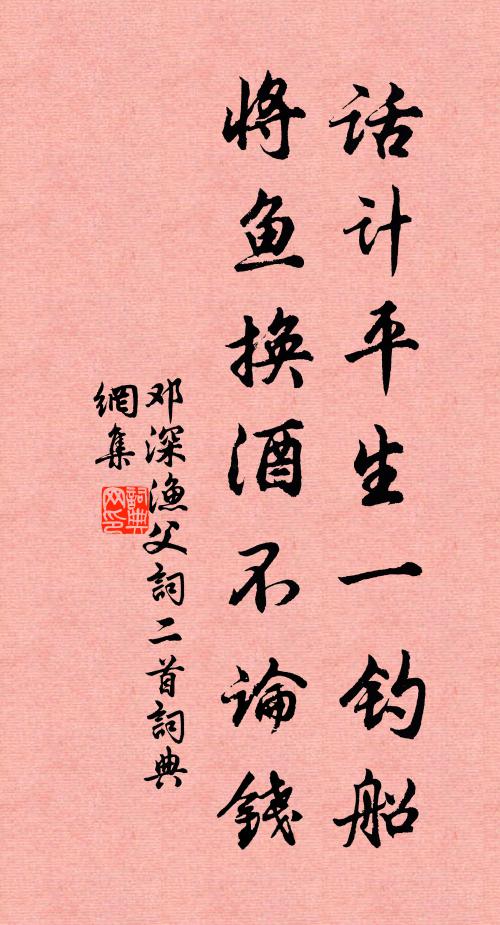 话计平生一钓船
将鱼换酒不论钱
邓深渔父词二首词典
網集
詞典
网印